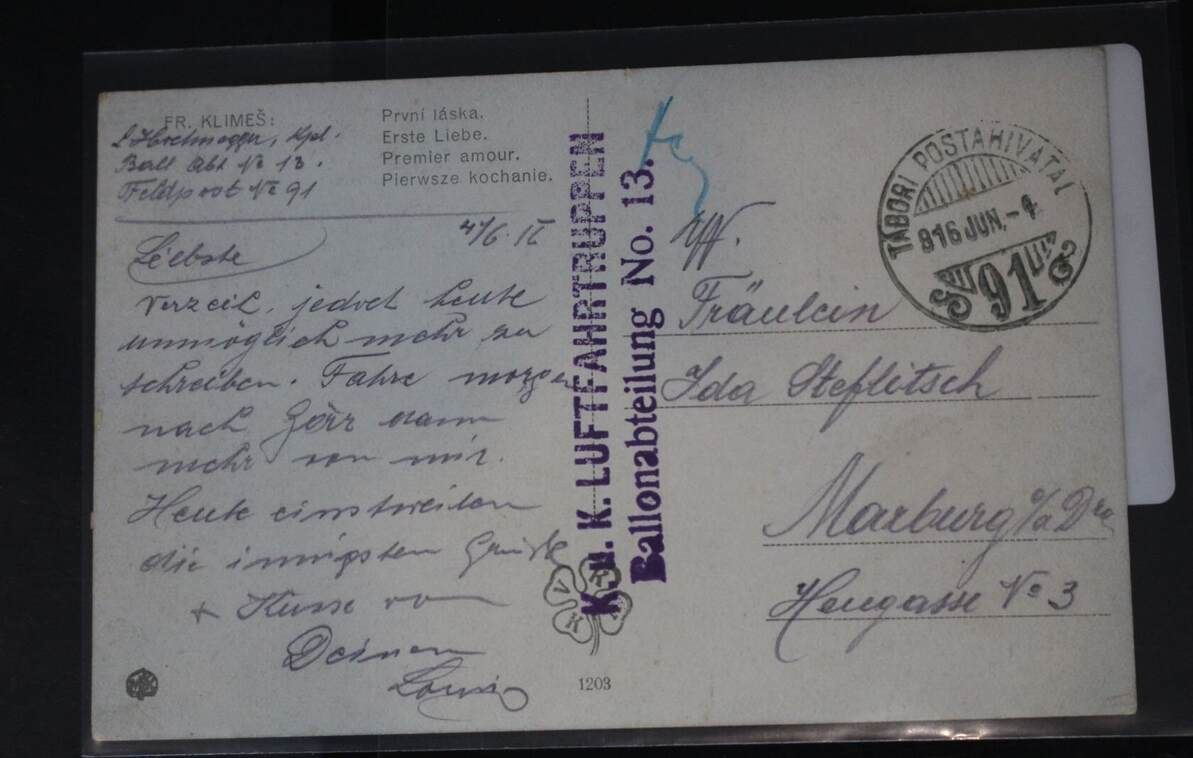 FR. KLIMEŠ:
První láska.
Erste Liebe.
Premier amour.
Pierwsze kochanie.
Kpl.
Ball. Abt. No 13.
Feldpost No 91
4/6. 16
Liebste
Verzeih, jedoch heute
unmöglich mehr zu
schreiben. Fahre morgen
nach Görz dann
mehr von mir.
Heute einstweilen
die innigsten Grüße
+ Küsse von
Deinem
Louis
K. u. K. LUFTFAHRTRUPPEN
Ballonabteilung No. 13.
TÁBORI POSTAHIVATAL
916 JUN.-4
91
Fräulein
Ida Steflitsch
Marburg a/a Drau
Heugasse No 3
1203